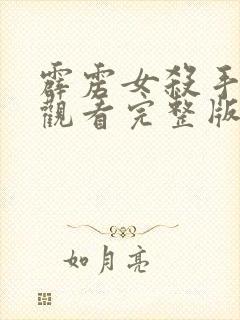 霹雳女殺手
觀看完整版
如月亮